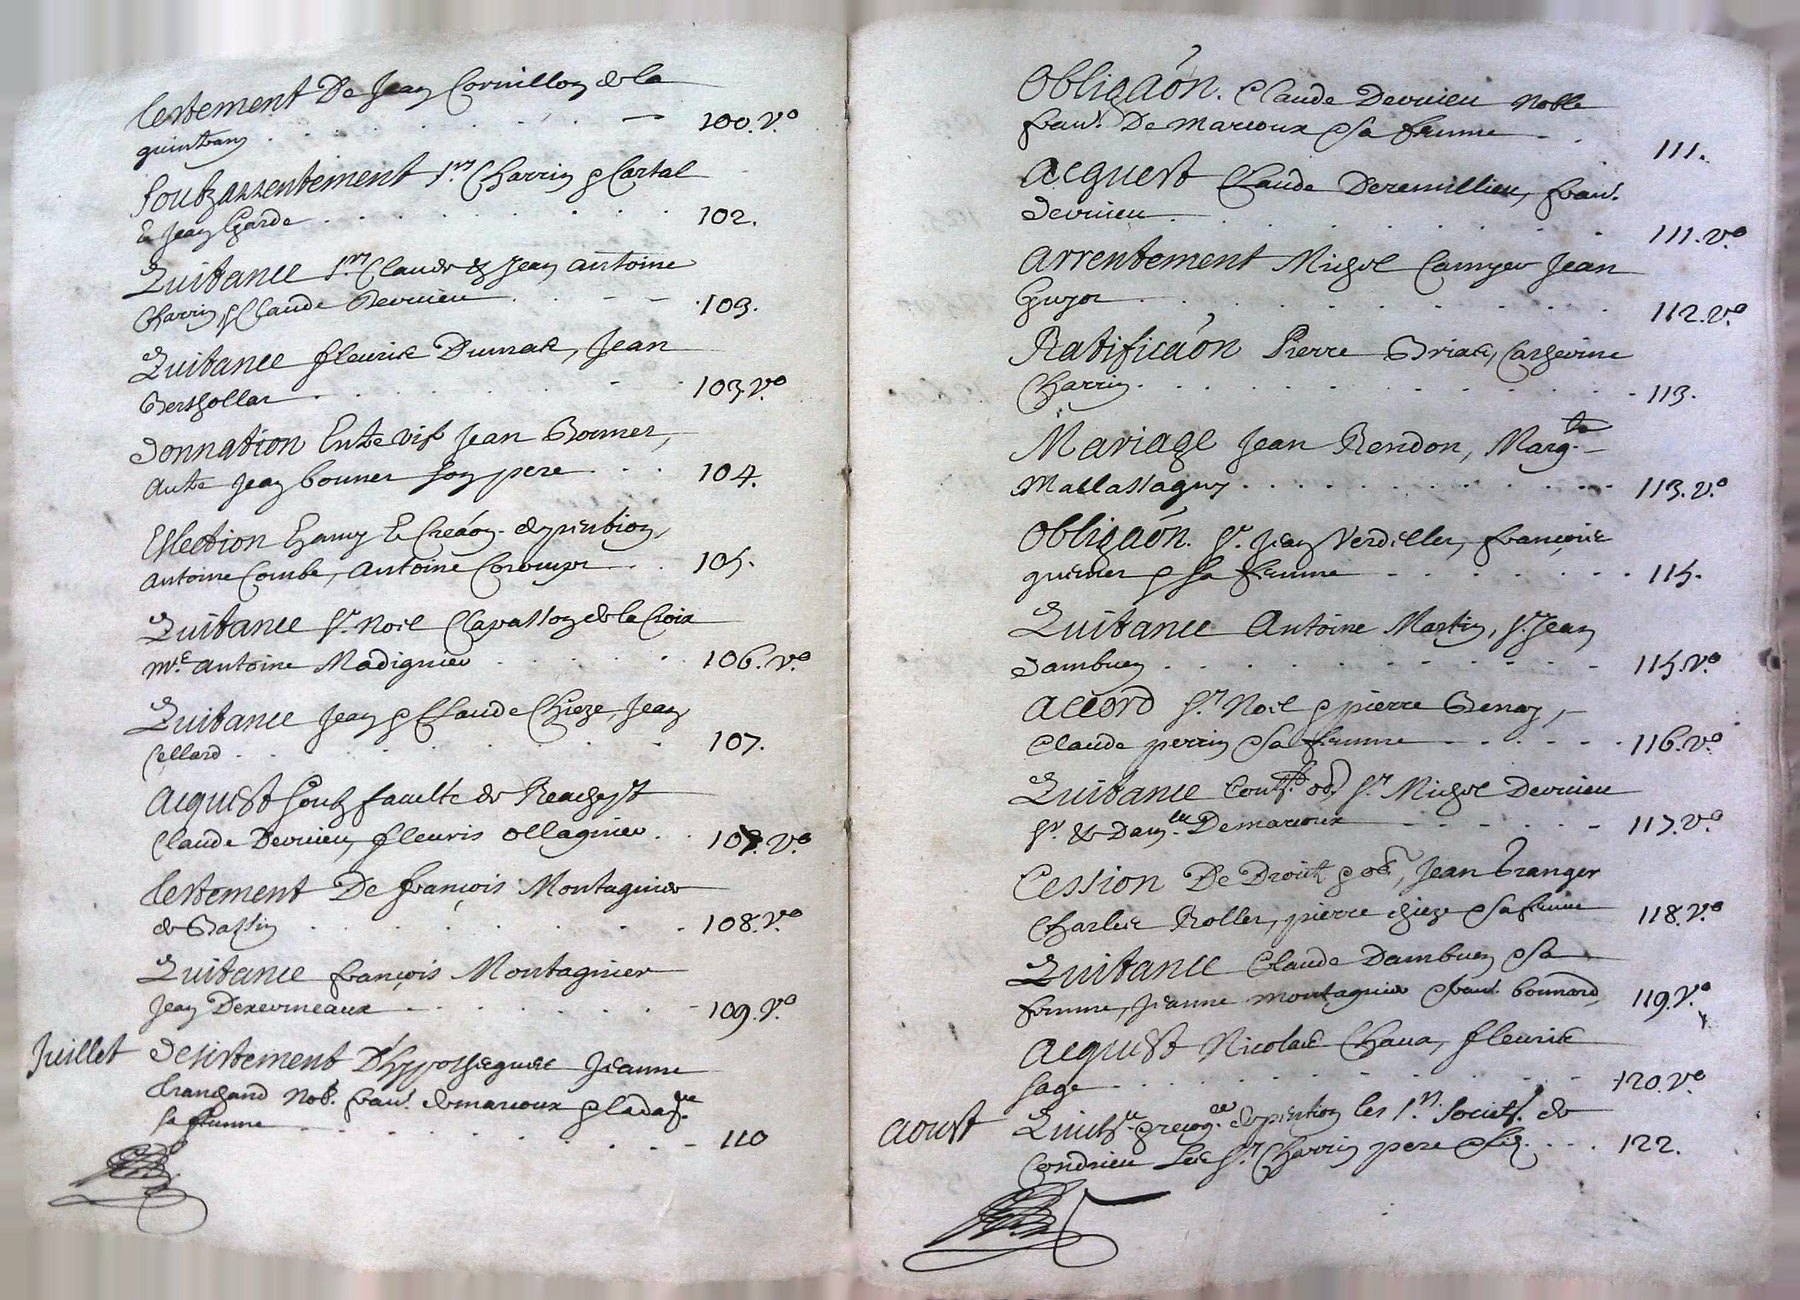 Testement De Jean Cornillon de la
quintany . . . . . . . 100.v.o
Soubzassentement Srs Charrin & Cartal
& Jean Garde . . . . . . . 102.
Quitance Srs Claude & Jean antoine
Charrin & Claude Devrieu . . . 103.
Quitance fleurie Dumas, Jean
Berthollat . . . . . . 103 v.o
Donnation Entre vifz Jean Bonnet,
Autre Jean bonnet son pere . . . 104.
Eslection Damy & Creaon. de pention,
Antoine Combe, Antoine . . 105.
Quitance Sr. Noel Clapasson de la Croix
me. antoine Madignier . . . . . 106.v.o
Quitance Jean & Claude Chieze, Jean
Cellard . . . . . . . 107.
Acquest soubz faculte de Reachept
Claude Devrieu, fleuris ollagnier . . 107.v.o
Testement De françois Montagnier
de Bassin . . . . . . . 108.v.o
Quitance françois Montagnier
Jean Dexermeaux . . . . . . 109.v.o
Juillet Desistement D'hypotheques Jeanne
Nob. fran. de marcoux & la dae.
sa femme . . . . . . . 110
Obligaôn. Claude Devrieu Noble
fran. De Marcoux & sa femme . . 111.
Acquest Claude Deremillieu, fran.
Devrieu . . . . . . . 111.v.o
Arrentement Michel Camyer Jean
Guyot . . . . . . . 112.v.o
Ratificaôn Pierre Briat, Catherine
Charrin . . . . . . . 113.
Mariage Jean Rendon, Margte.
Mallassagny . . . . . . . 113.v.o
Obligaôn. Sr. Jean Verdellet, françoise
quemer & sa femme . . . . . . 115.
Quitance Antoine Martin, Sr. Jean
Dambuen . . . . . . . 115.v.o
Accord Sr. Noel & pierre Benay,
Claude perrin & sa femme . . . . . 116.v.o
Quitance Cont. ob. Sr. Michel Devrieu
Sr. & Damlle. Demarcoux . . . . . 117.v.o
Cession De Droit & ob., Jean Granger
Charles Rollet, pierre chieze & sa femme 118.v.o
Quitance Claude Dambuen & sa
femme, Jeanne montagnier & fran. bonnard, 119.v.o
Acquest Nicolas Chava, fleurie
sage . . . . . . . 120.v.o
Aoust Quitce. & recog.ce de pention les Srs. Societ. de
Condrieu Les Srs Charrin pere & fils . . . 122.